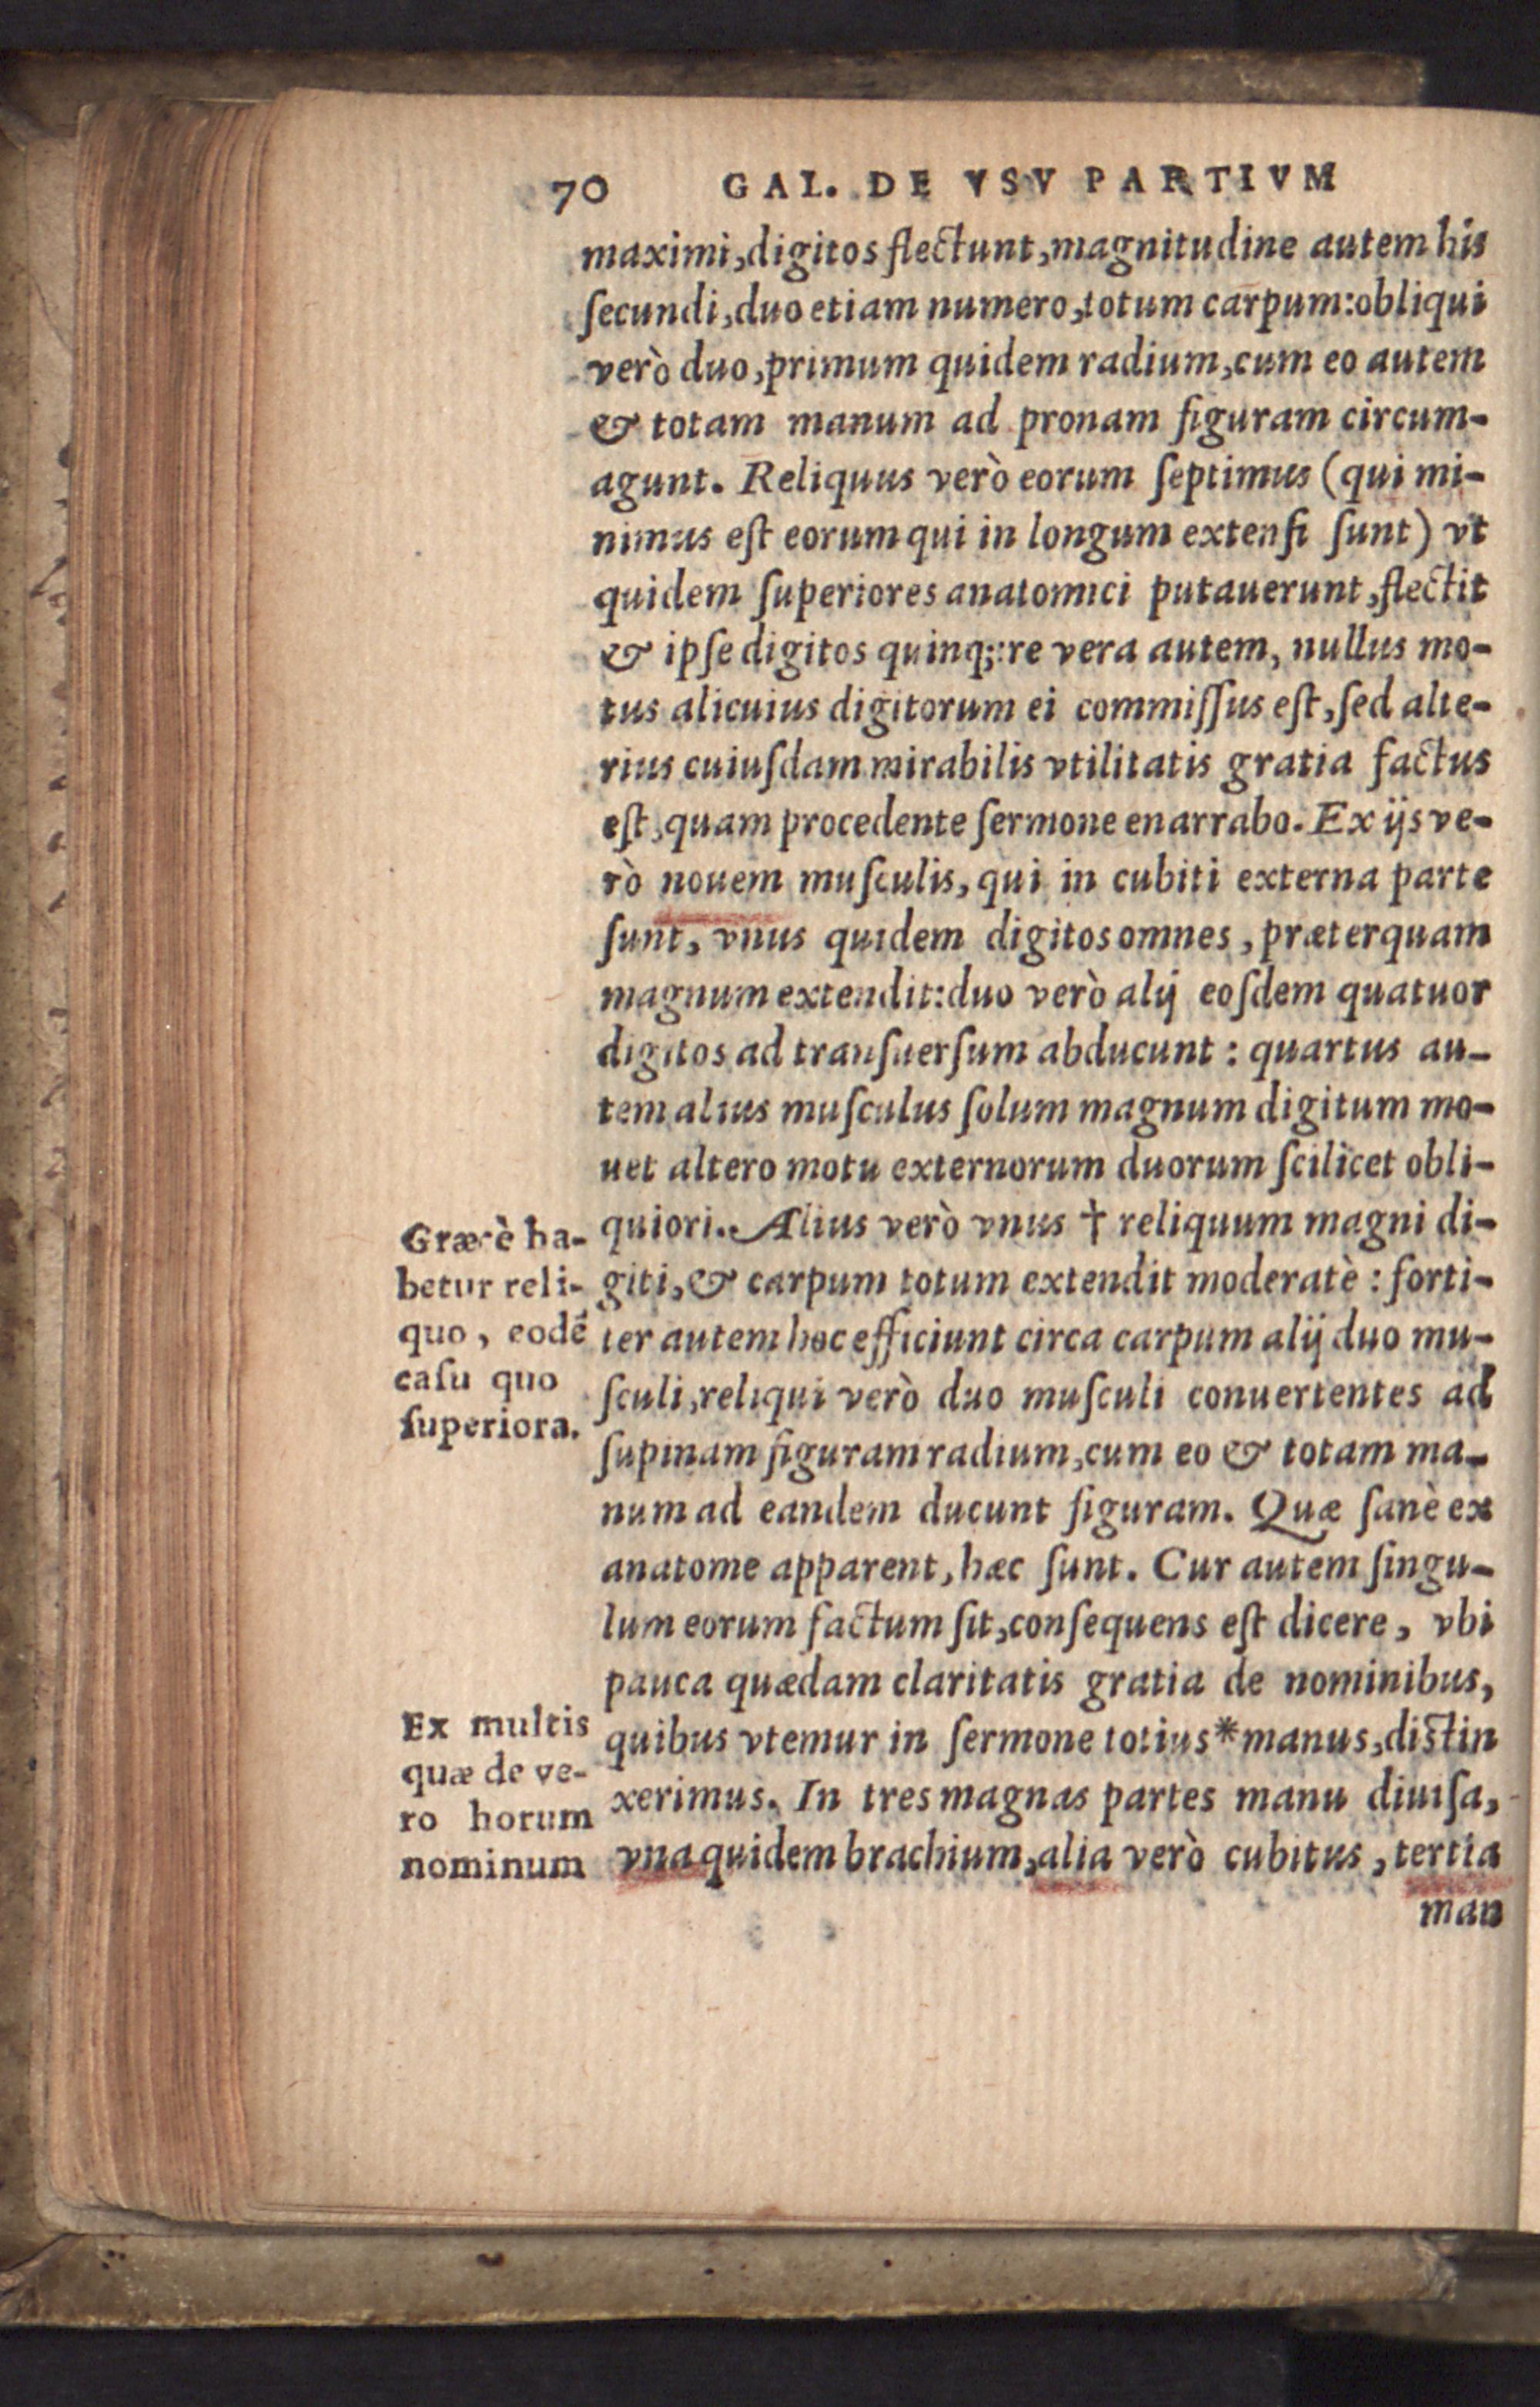 70 GAL. DE VSV PARTIVM
maximi, digitos flectunt, magnitudine autem his
ſecundi, duo etiam numero, totum carpum: obliqui
verò duo, primum quidem radium, cum eo autem
& totam manum ad pronam figuram circum-
agunt. Reliquus verò eorum ſeptimus (qui mi-
nimus eſt eorum qui in longum extenſi ſunt) vt
quidem ſuperiores anatomici putauerunt, flectit
& ipſe digitos quinq;: re vera autem, nullus mo-
tus alicuius digitorum ei commiſſus eſt, ſed alte-
rius cuiuſdam mirabilis vtilitatis gratia factus
eſt, quam procedente ſermone enarrabo. Ex ijs ve-
rò nouem muſculis, qui in cubiti externa parte
ſunt, vnus quidem digitos omnes, præterquam
magnum extendit: duo verò alij eoſdem quatuor
digitos ad tranſuerſum abducunt: quartus au-
tem alius muſculus ſolum magnum digitum mo-
uet altero motu externorum duorum ſcilicet obli-
quiori. Alius verò vnus † reliquum magni di-
giti, & carpum totum extendit moderatè: forti-
ter autem hoc efficiunt circa carpum alij duo mu-
ſculi, reliqui verò duo muſculi conuertentes ad
ſupinam figuram radium, cum eo & totam ma-
num ad eandem ducunt figuram. Quæ ſanè ex
anatome apparent, hæc ſunt. Cur autem ſingu-
lum eorum factum ſit, conſequens eſt dicere, vbi
pauca quædam claritatis gratia de nominibus,
quibus vtemur in ſermone totius * manus, diſtin
xerimus. In tres magnas partes manu diuiſa,
vna quidem brachium, alia verò cubitus, tertia
man
Græcè ha-
betur reli-
quo, eodẽ
caſu quo
ſuperiora.
Ex multis
quæ de ve-
ro horum
nominum